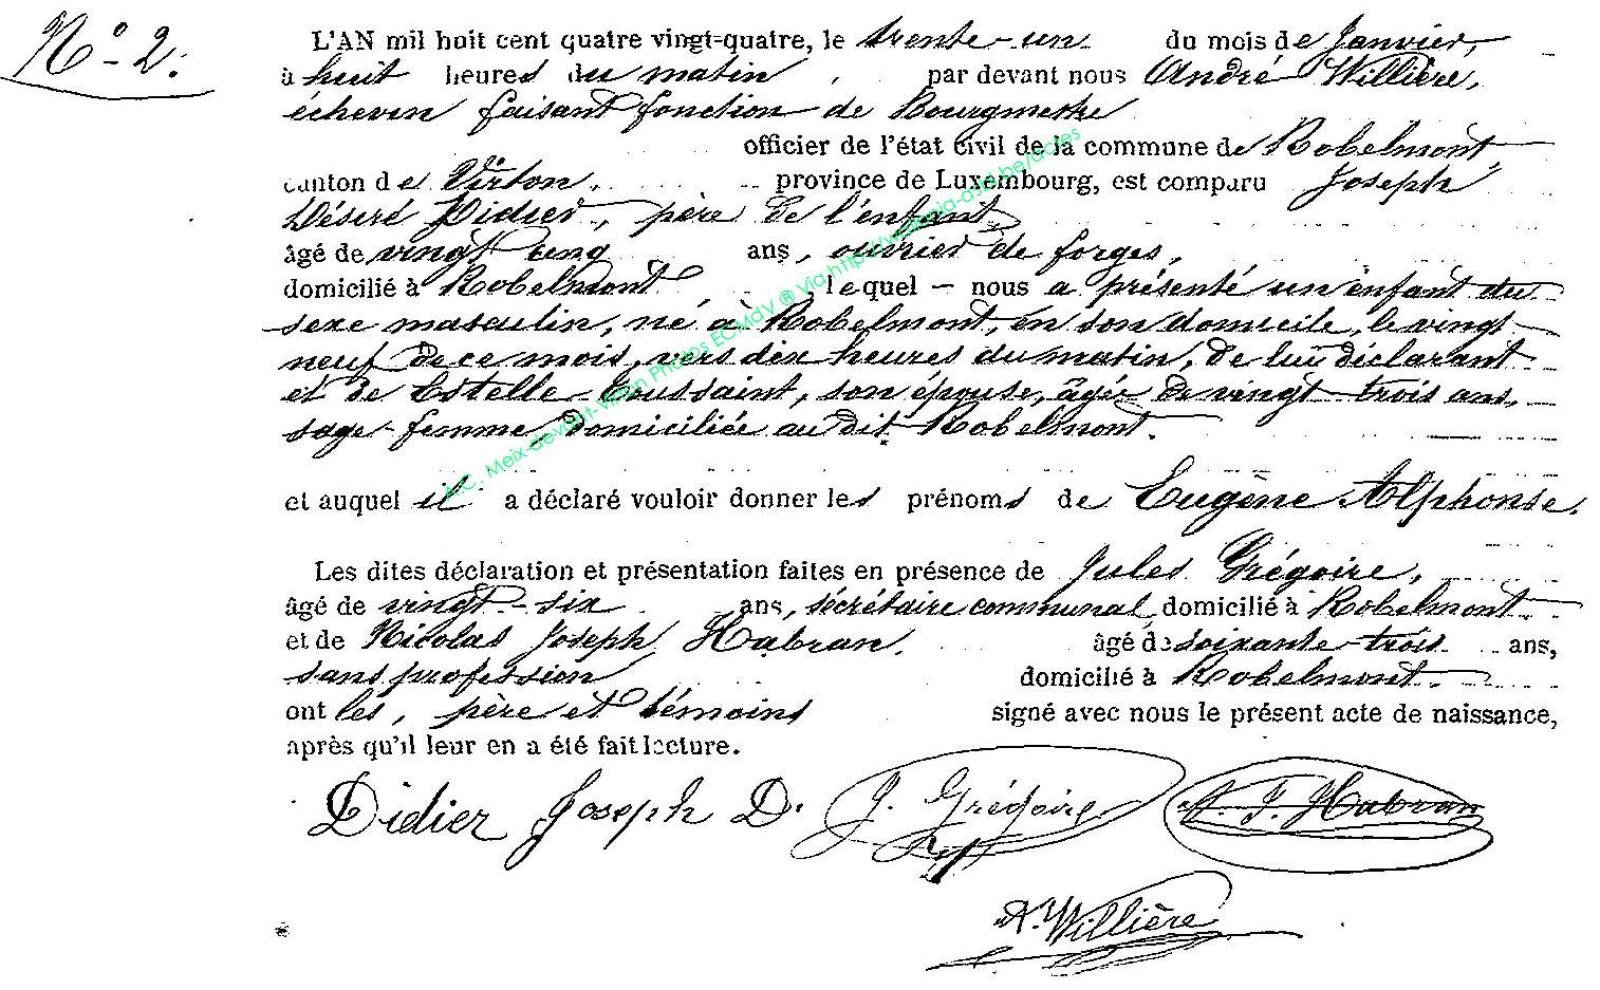 N° 2.
L'AN mil huit cent quatre vingt-quatre, le trente-un du mois de Janvier,
à huit heures du matin, par devant nous André Willière,
échevin faisant fonction de Bourgmestre
officier de l'état civil de la commune de Robelmont,
canton de Virton, province de Luxembourg, est comparu Joseph
Désiré Didier, père de l'enfant,
âgé de vingt cinq ans, ouvrier de forges,
domicilié à Robelmont, lequel – nous a présenté un enfant du
sexe masculin, né à Robelmont, en son domicile, le vingt
neuf de ce mois, vers dix heures du matin, de lui déclarant
et de Estelle Toussaint, son épouse, âgée de vingt-trois ans,
sage-femme, domiciliée au dit Robelmont.
et auquel il a déclaré vouloir donner les prénoms de Eugène Alphonse.
Les dites déclaration et présentation faites en présence de Jules Grégoire,
âgé de vingt-six ans, sécrétaire communal, domicilié à Robelmont
et de Nicolas Joseph Habran, âgé de soixante-trois ans,
sans profession domicilié à Robelmont.
ont les, père et témoins signé avec nous le présent acte de naissance,
après qu'il leur en a été fait lecture.
Didier Joseph D. J. Grégoire N. J. Habran
A. Willière
A.C. Meix-devant-Virton Photos ECMdV ® Via http://wallonia-asbl.be/actes